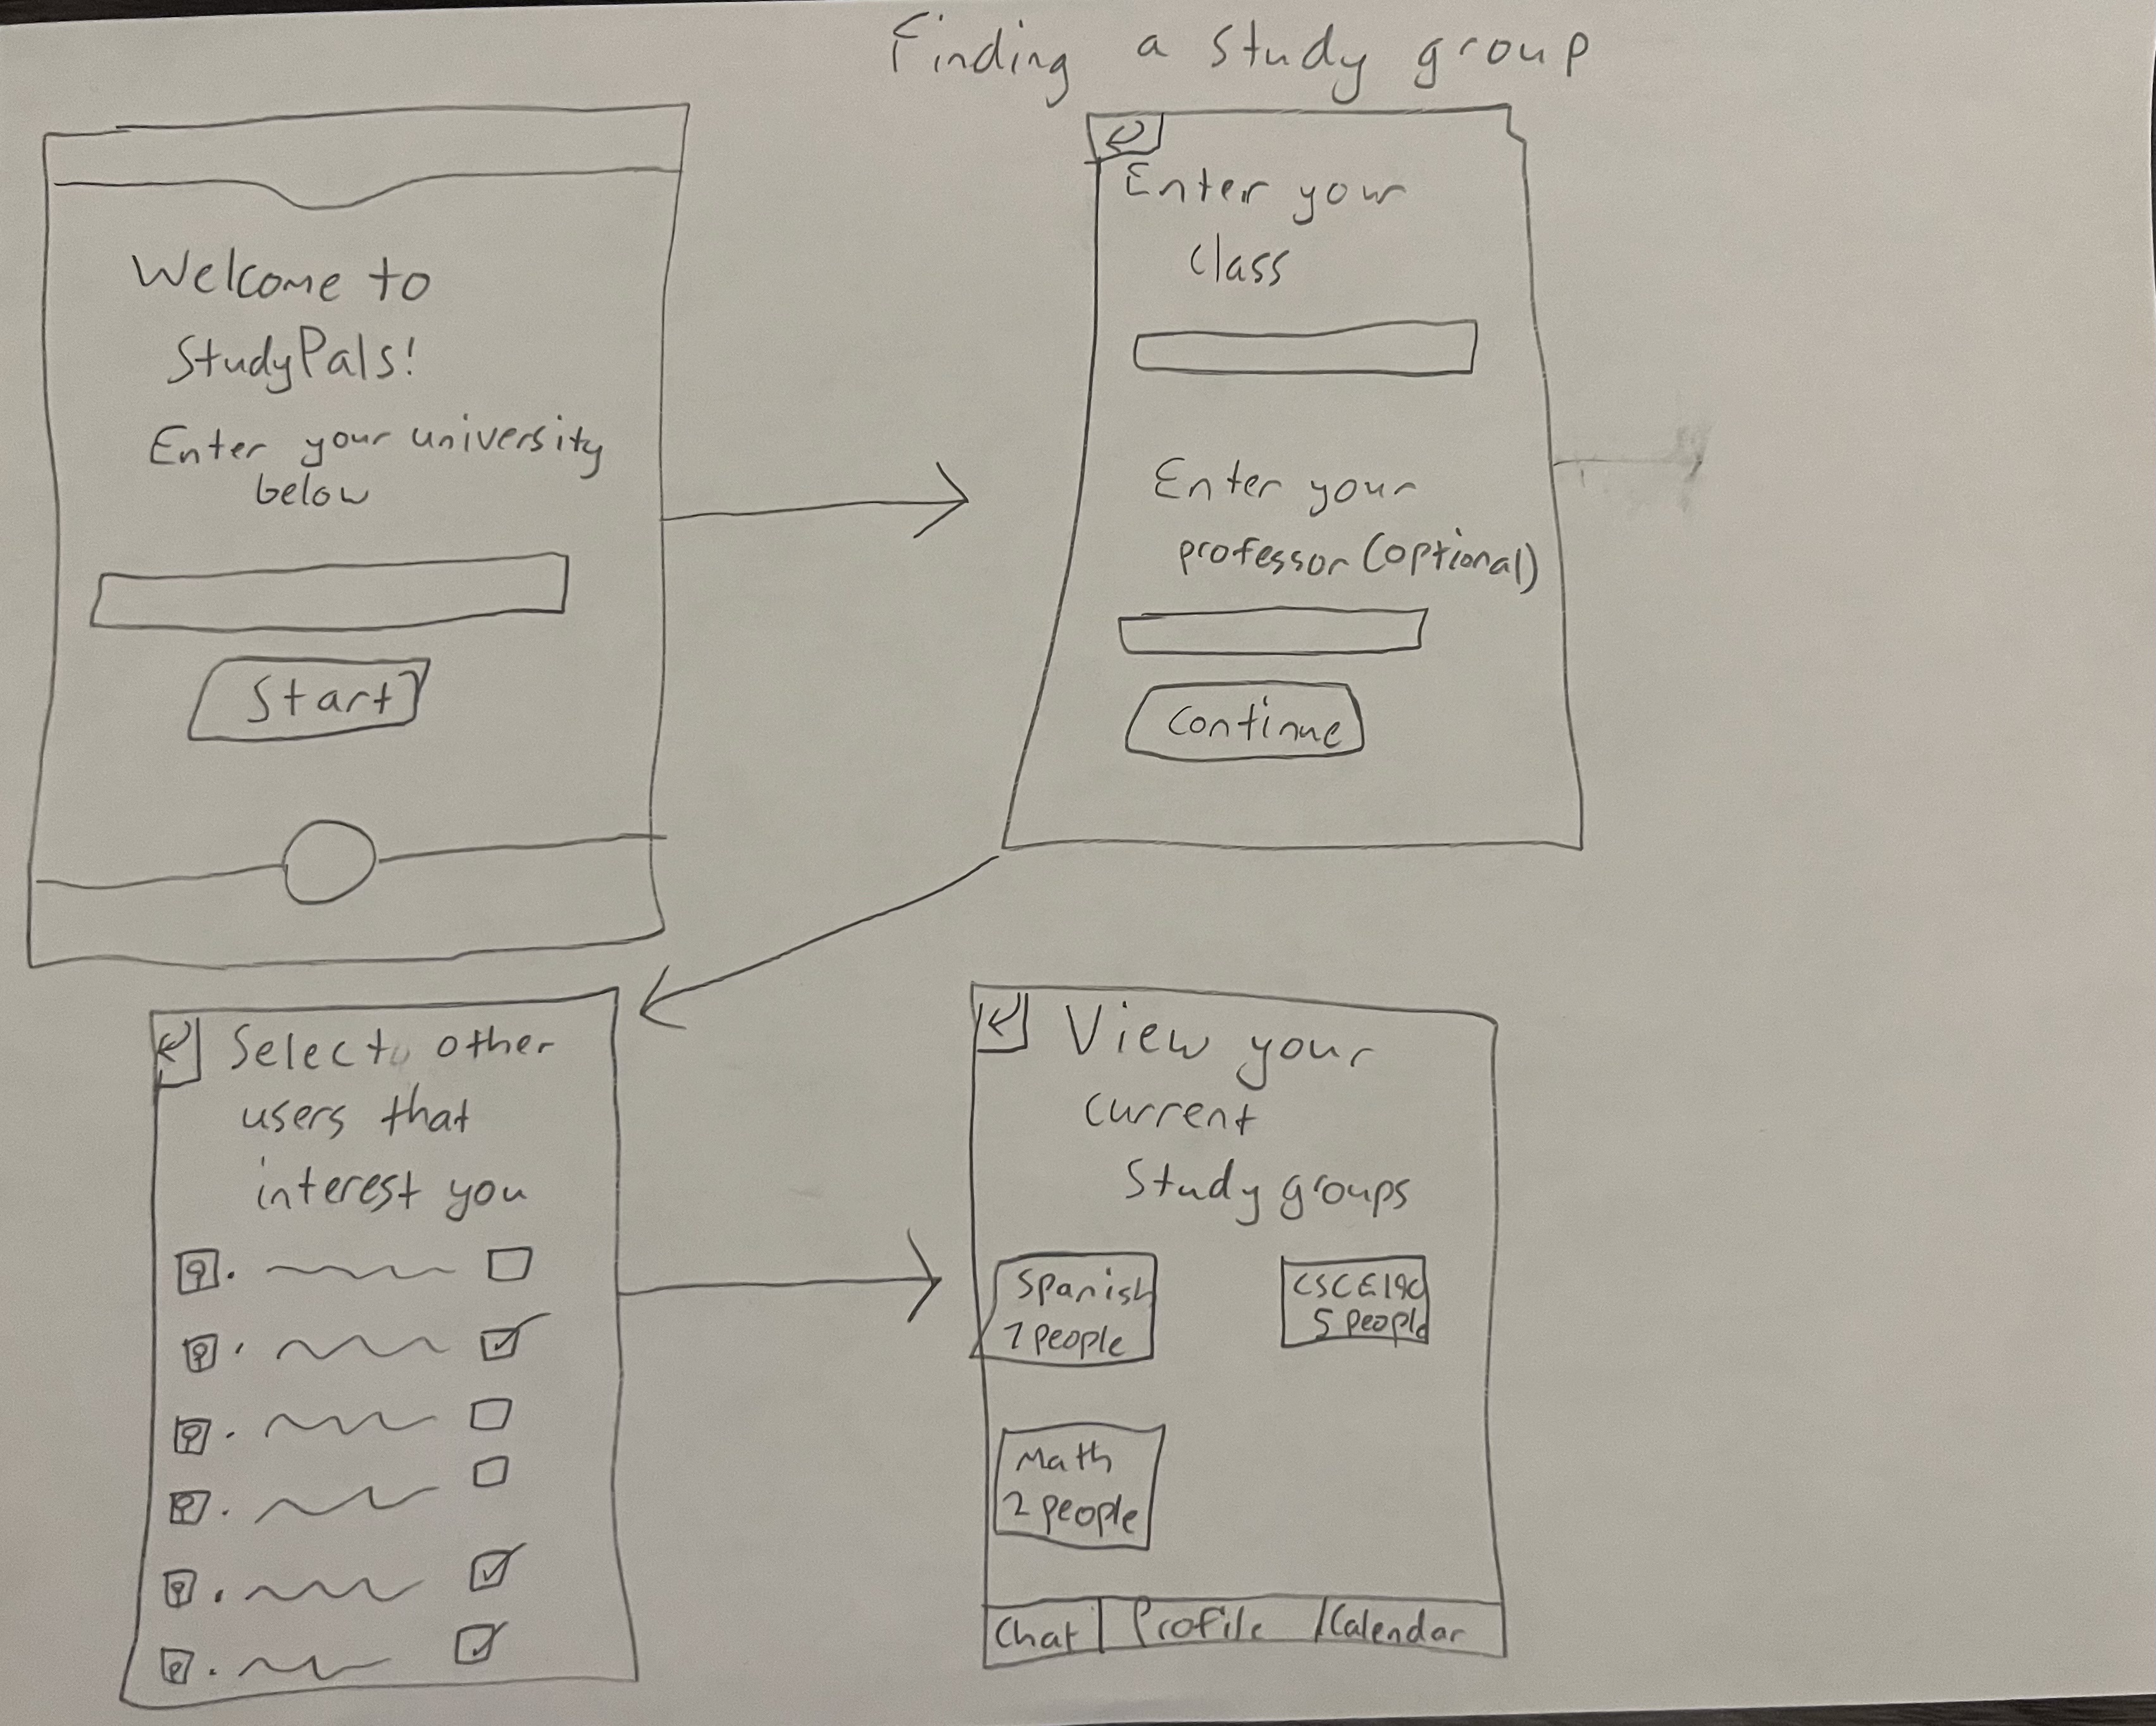 Finding a study group
Welcome to
StudyPals!
Enter your university
below
Start
Enter your
class
Enter your
professor (optional)
Continue
Select other
users that
interest you
View your
current
Study groups
Spanish
7 people
CSCE190
5 people
Math
2 people
Chat
Profile
Calendar